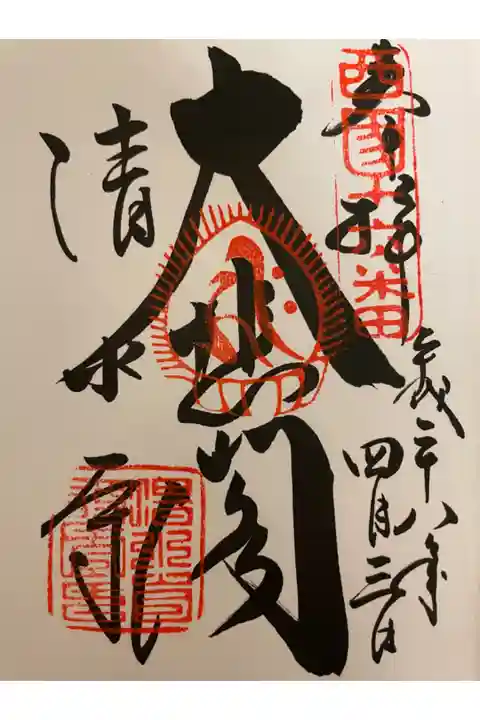 奉拝
西國十六番
平成二十八年
四月三日
大悲閣
清水寺